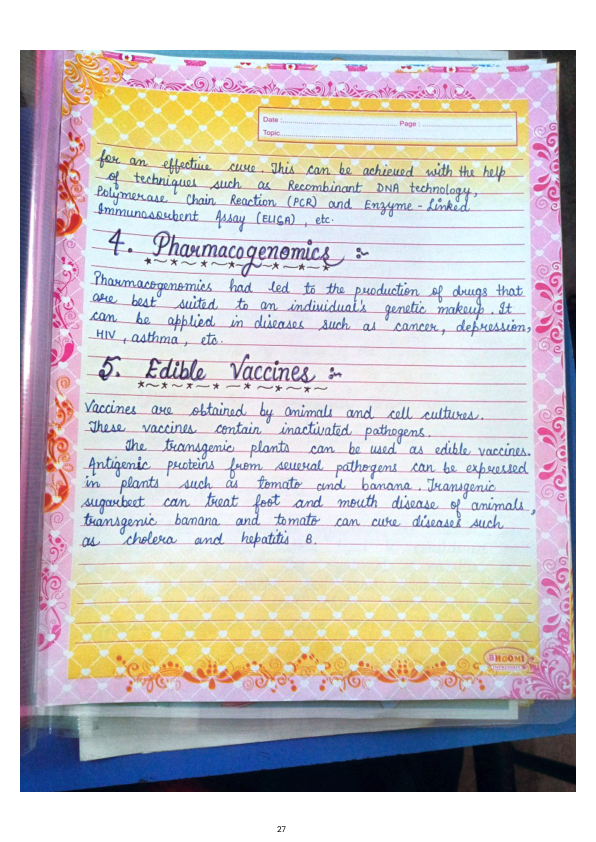 Date : Page :
Topic
for an effective cure. This can be achieved with the help
of techniques such as Recombinant DNA technology,
Polymerase Chain Reaction (PCR) and Enzyme-Linked
Immunosorbent Assay (ELISA), etc.
4. Pharmacogenomics :~
Pharmacogenomics had led to the production of drugs that
are best suited to an individual's genetic makeup. It
can be applied in diseases such as cancer, depression,
HIV, asthma, etc.
5. Edible Vaccines :~
Vaccines are obtained by animals and cell cultures.
These vaccines contain inactivated pathogens.
The transgenic plants can be used as edible vaccines.
Antigenic proteins from several pathogens can be expressed
in plants such as tomato and banana. Transgenic
sugarbeet can treat foot and mouth disease of animals,
transgenic banana and tomato can cure diseases such
as cholera and hepatitis B.
BHOOMI
27